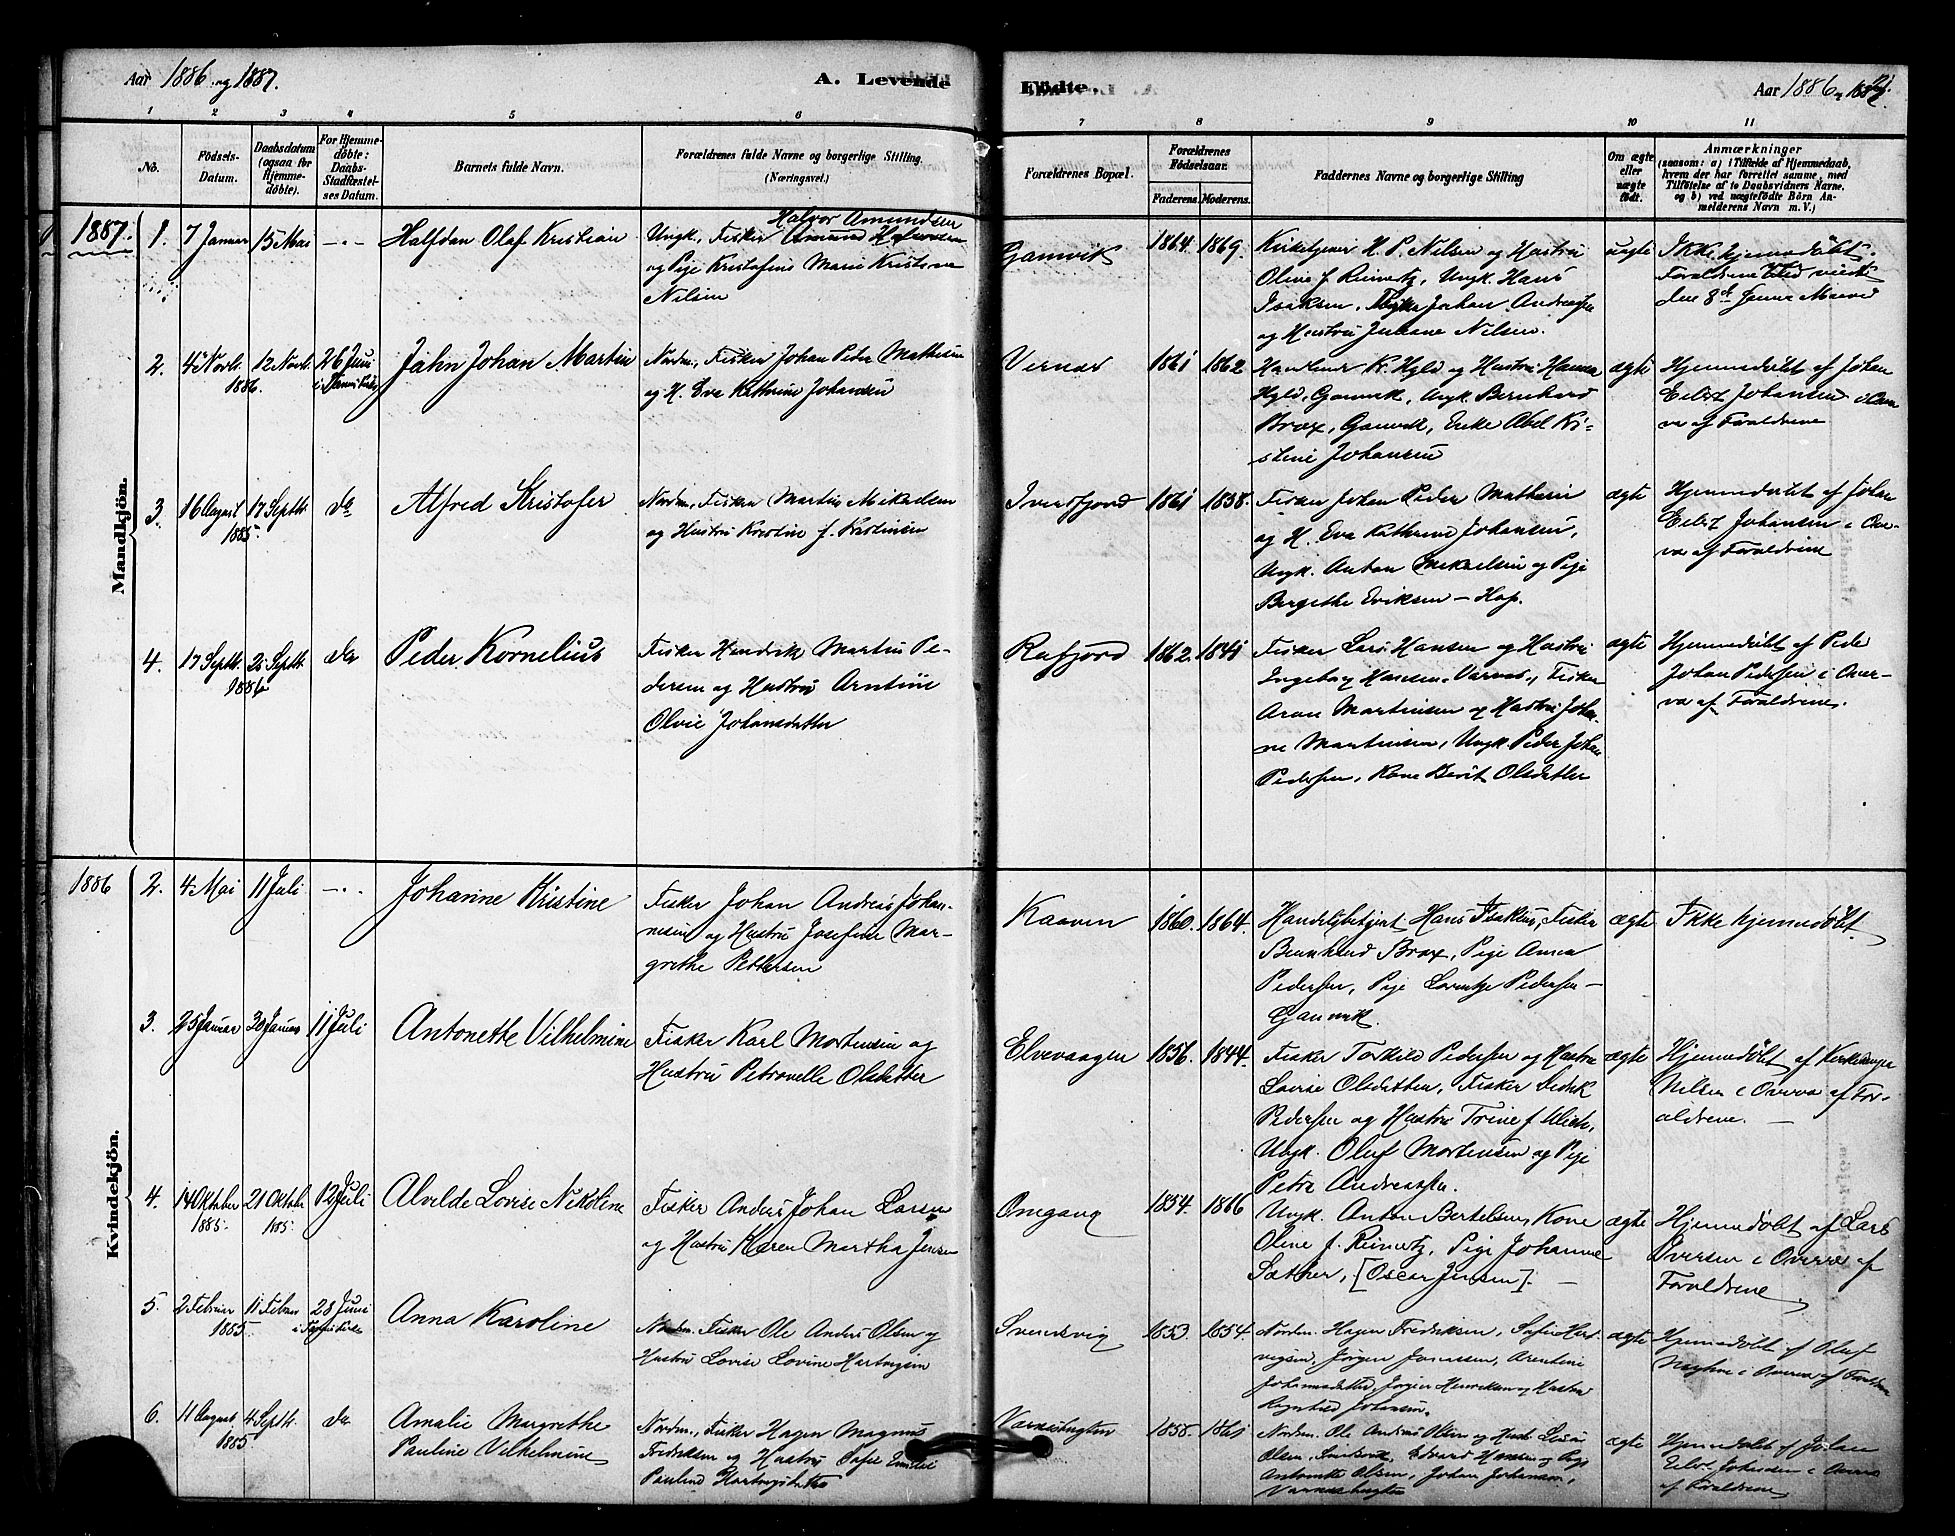 Aar 1886 og 1887.
A. Levende
Födte.
Aar 1886 og 1887.
1 2 3 4 5 6 7 8 9 10 11
No.
Födsels-
Datum.
Daabsdatum
(ogsaa for
Hjemme-
döbte).
For Hjemme-
döbte:
Daabs-
Stadfæstel-
ses Datum.
Barnets fulde Navn.
Forældrenes fulde Navne og borgerlige Stilling.
(Næringsvei.)
Forældrenes Bopæl.
Forældrenes
Födselsaar.
Faderens. Moderens.
Faddernes Navne og borgerlige Stilling
Om ægte
eller
uægte
födt.
Anmærkninger
(saasom: a) i Tilfælde af Hjemmedaab,
hvem der har forrettet samme, med
Tilföielse af to Daabsvidners Navne,
og b) ved uægtefödte Börn An-
melderens Navn m. V.)
Mandkjön.
1887.
1. 7 Januar 15 Mai -"- Halfdan Olaf Kristian
Halvor Amundsen
Ungk. Fisker Amund Halvorsen
og Pige Kristofine Marie Kristine
Nilsen
Gamvik 1864. 1869.
Kirketjener H. P. Nilsen og Hustru
Oline f. Reinertz, Ungk. Hans
Isaksen, Fisker Johan Andreassen
og Hustru Juliane Nilsen.
uægte
Ikke hjemmedøbt.
Forældrene
den 8de
2. 4 Novbr. 12 Novbr. 26 Juni
1886.
Jahn Johan Martin
Nordm., Fisker Johan Peder Mathisen
og H. Eva Kathrine Johansen
Vernæs 1861 1862
Handlende K. Hyld og Hustru Hanna
Hyld, Gamvik, Ungk. Bernhard
Brox, Gamvik, Enke Abel Kri-
stine Johansen
ægte
Hjemmedøbt af Johan
Eilert Johansen i Over-
vær af Forældrene
3. 16 August 17 Septbr. do
1885.
Alfred Kristofer
Nordm., Fisker Martin Mikaelsen
og Hustru Kristine f. Kristensen
Iversfjord 1861 1838.
Fisker Johan Peder Mathisen
og H. Eva Kathrine Johansen,
Ungk. Anton Mikaelsen og Pige
Bergithe Eriksen - Hop.
ægte
Hjemmedøbt af Johan
Eilert Johansen i Over-
vær af Forældrene
4. 17 Septbr. 25 Septbr. do
1886
Peder Kornelius
Fisker Hendrik Martin Pe-
dersen og Hustru Arntine
Olvie Johansdatter
Risfjord 1862. 1841
Fisker Lars Hansen og Hustru
Ingeborg Hansen, Vernæs, Fisker
Aron Martinsen og Hustru Johan-
ne Martinsen, Ungk. Peder Johan
Pedersen, Kone Berit Olsdatter
ægte
Hjemmedøbt af Peder
Johan Pedersen i Over-
vær af Forældrene.
Kvindekjön.
1886
2. 4 Mai 11 Juli -"- Johanne Kristine
Fisker Johan Andreas Johan-
nesen og Hustru Josefine Mar-
grethe Pettersen
Kaaven 1860. 1864.
Handelsbetjent Hans Isaksen, Fisker
Bernhard Brox, Pige Anna
Pedersen, Pige Lorentze Pedersen -
Gamvik.
ægte
Ikke hjemmedøbt.
3. 25 Januar 30 Januar 11 Juli Antonette Vilhelmine
Fisker Karl Mortensen og
Hustru Petronelle Olsdatter
Elvevaagen 1856. 1844.
Fisker Torkild Pedersen og Hustru
Lovise Olsdatter, Fisker Fredrik
Pedersen og Hustru Trine f.
Ungk. Oluf Mortensen og Pige
Petra Andreassen.
ægte
Hjemmedøbt af Kirketjener
Nilsen i Overvær af For-
ældrene. -
4. 14 Oktober 21 Oktober 12 Juli
1885. 1885.
Alvilde Lovise Nikoline
Fisker Anders Johan Larsen
og Hustru Karen Martha Jensen
Omgang 1854. 1866
Ungk. Anton Bertelsen, Kone
Oline f. Reinertz, Pige Johanne
Sæther, [Oscar Jensen]. -
ægte
Hjemmedøbt af Lars
Iversen i Overvær af
Forældrene
5. 2 Februar 11 Februar 28 Juni
1885.
Anna Karoline
Nordm. Fisker Ole Anders Olsen og
Hustru Lovise Lovine Hartvigsen
Svensvig 1853. 1854.
Nordm. Hagen Fredriksen, Sofie Hart-
vigsen, Jørgen Jonassen, Arentine
Johannesdatter, Jørgen Henriksen og Hustru
Ragnhild Johansen.
ægte
Hjemmedøbt af Oluf
i Overvær af Forældrene
6. 11 August 4 Septbr. do
1885.
Amalie Margrethe
Pauline Vilhelmine
Nordm., Fisker Hagen Magnus
Fredriksen og Hustru Sofie Emilie
Pauline Hartvigsdatter
Varnæsbugten 1858. 1861
Nordm. Ole Anders Olsen og Hust. Lovise
Olsen, Edvard Hansen og Pige
Antonette Olsen, Johan Johansen,
Varnæsbugten
ægte
Hjemmedøbt af Johan
Eilert Johansen i Overvær
af Forældrene